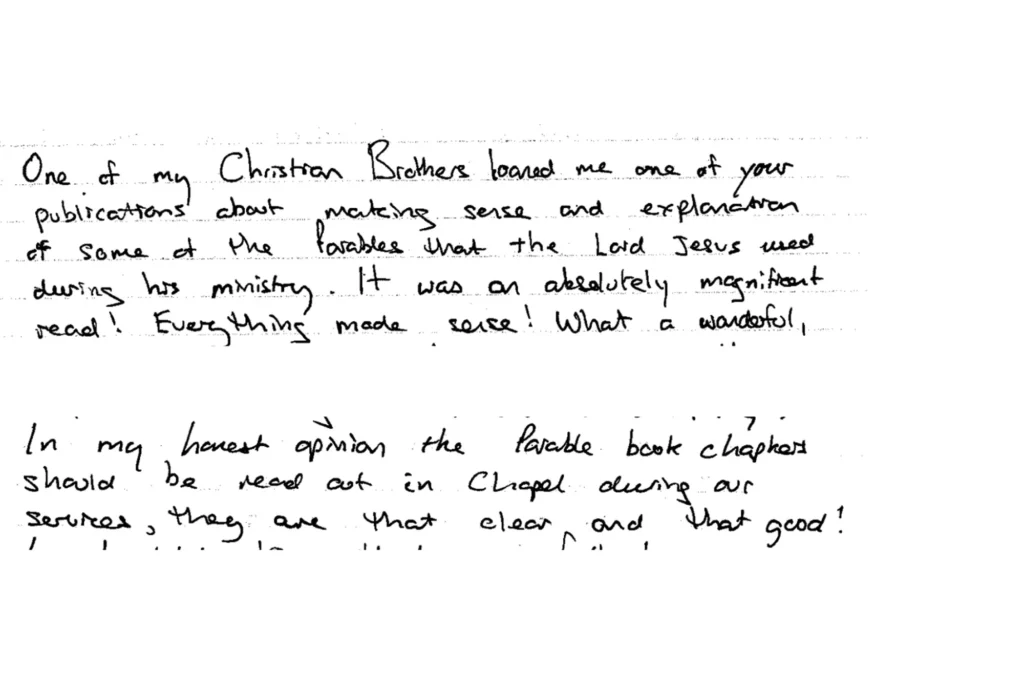 One of my Christian Brothers loaned me one of your
publications about making sense and explanation
of some of the Parables that the Lord Jesus used
during his ministry. It was an absolutely magnificent
read! Everything made sense! What a wonderful,
In my honest opinion the Parable book chapters
should be read out in Chapel during our
services, they are that clear and that good!